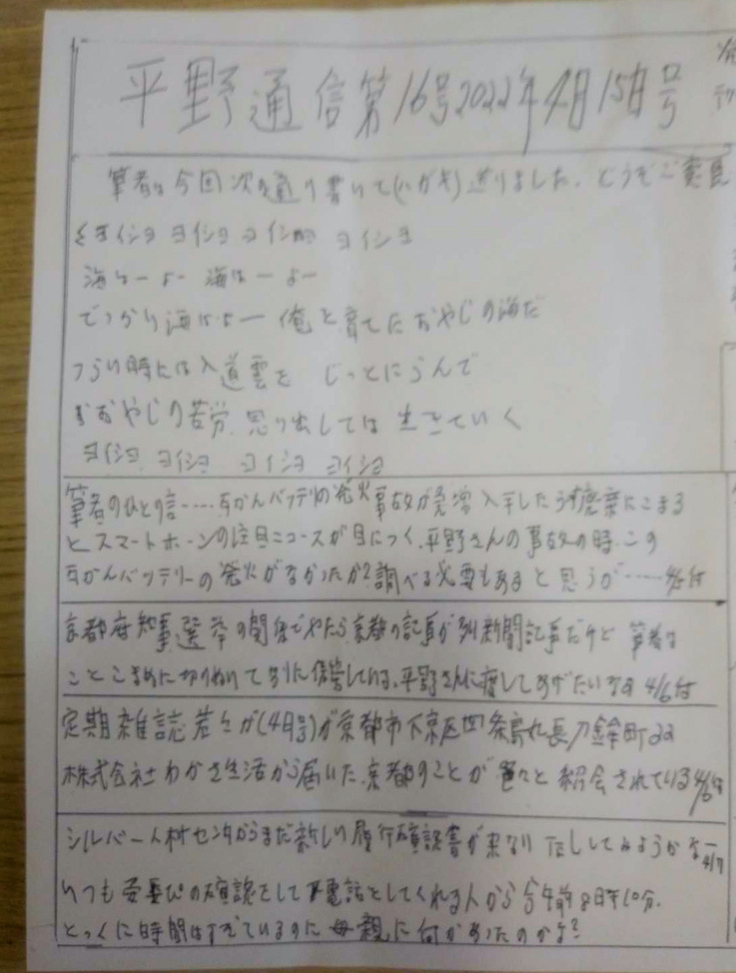 平野通信第16号2022年4月15日号
筆者は今回次の通り書いて(ハガキ)送りました。どうぞご覧
ヨイショ ヨイショ ヨイショ ヨイショ
海はーよー 海はーよー
でっかい海はよー 俺を育てたおやじの海だ
つらい時には入道雲を じっとにらんで
おやじの苦労 思い出しては 生きていく
ヨイショ ヨイショ ヨイショ ヨイショ
筆者のひとり言……バッテリの発火事故が急増 入手したら廃棄にこまる
とスマートホーンの注目ニュースが目につく、平野さんの事故の時、この
バッテリーの発火がなかったか?調べる必要もあると思うが……4/5付
京都府知事選挙の関係でやたら京都の記事が 新聞記事だけど 筆者は
ことこまめに切りぬいて 保管している、平野さんに渡してあげたいなあ 4/6付
定期雑誌若々が(4月号)が京都市下京区四条烏丸長刀鉾町22
株式会社わかさ生活から届いた、京都のことが 色々と紹会されている4/6付
シルバー人材センタからまだ新しい履行確認書が来ない してみようかなー4/7
いつも安否の確認をして電話をしてくれる人から今午前8時10分、
とっくに時間はすぎているのに母親に何かあったのかな?